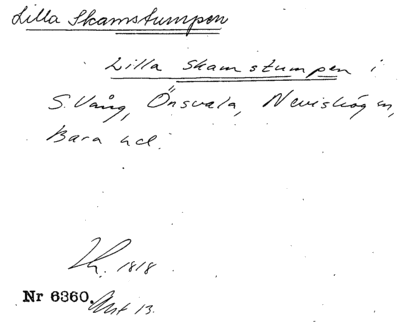 Lilla Skamstumpen
Lilla skamstumpen i
S. Vång, Önsvala, Nevishög sn,
Bara hd.
1818
Nr 6360. Akt 13.